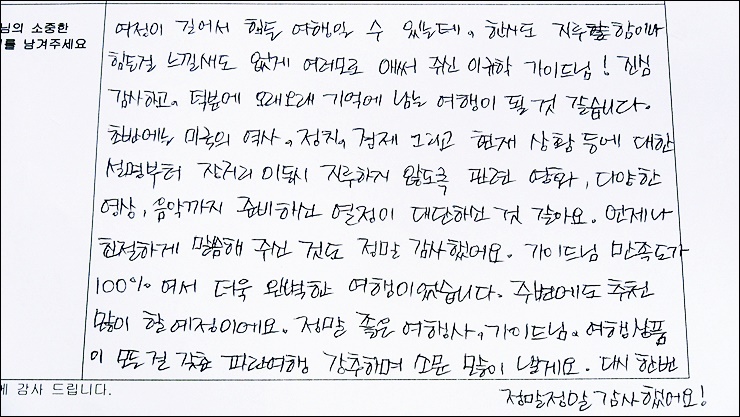 님의 소중한
를 남겨주세요
여정이 길어서 힘든 여행일 수 있는데, 한시도 지루함이나
힘든걸 느낄새도 없게 여러모로 애써 주신 이규학 가이드님! 진심
감사하고, 덕분에 오래오래 기억에 남는 여행이 될 것 같습니다.
초반에는 미국의 역사, 정치, 경제 그리고 현재 상황 등에 대한
설명부터 장거리 이동시 지루하지 않도록 관련 영화, 다양한
영상, 음악까지 준비하신 열정이 대단하신 것 같아요. 언제나
친절하게 말씀해 주신 것도 정말 감사했어요. 가이드님 만족도가
100%여서 더욱 완벽한 여행이었습니다. 주변에도 추천
많이 할 예정이에요. 정말 좋은 여행사, 가이드님, 여행상품
이 모든걸 갖춘 파란여행 강추하며 소문 많이 낼게요. 다시 한번
정말정말 감사했어요!
에 감사 드립니다.